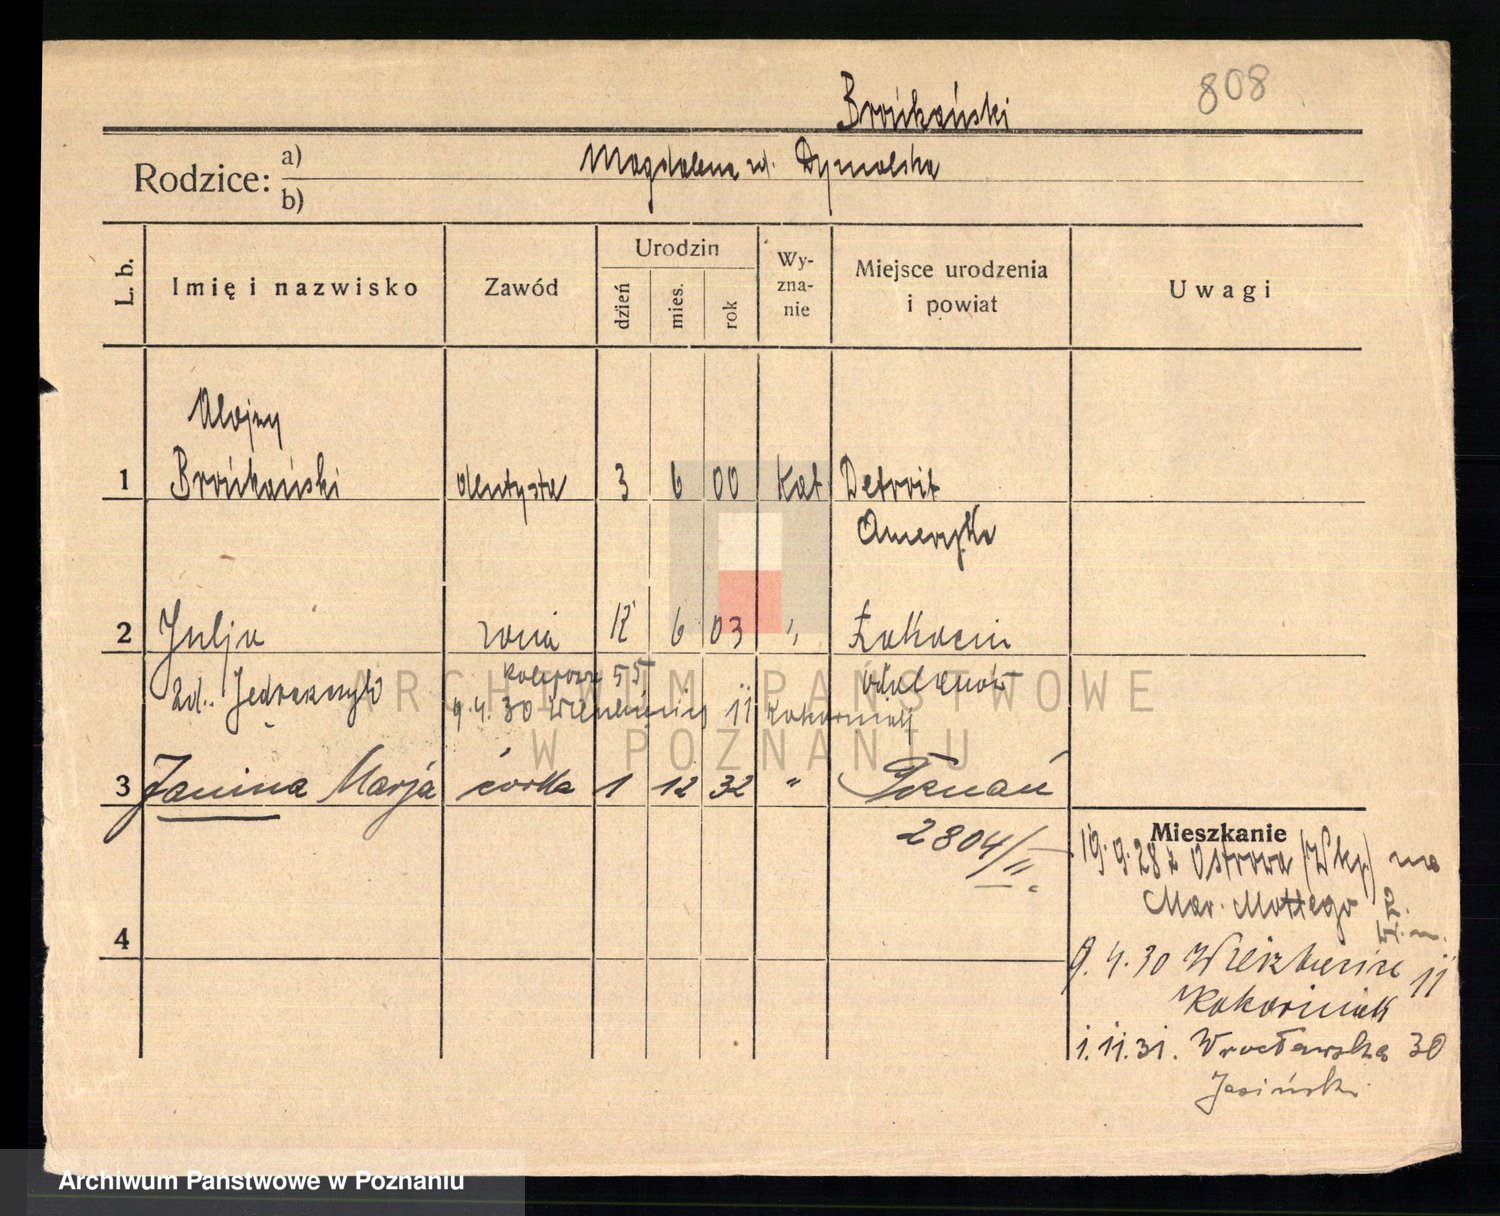 Brońkański 808
Rodzice: a) Magdalena zd. Dymalska
b)
L. b. Imię i nazwisko Zawód Urodzin dzień mies. rok Wyznanie Miejsce urodzenia i powiat Uwagi
Alojzy
1 Brońkański dentysta 3 6 00 Kat Detroit
Ameryka
2 Julja żona 12 6 03 " 
zd. Jędrzeczyk 55
9.4.30 11 Kokorniak
ARCHIWUM PAŃSTWOWE
W POZNANIU
3 Janina Marja córka 1 12 32 " Poznań
2804/II
4
Mieszkanie
19.9.28 z Ostrowa (Wkp) na
Mar. Mottego
9.4.30 Wierzbięcice 11
Kokorniak
1.11.31. Wrocławska 30
Jasiński
Archiwum Państwowe w Poznaniu